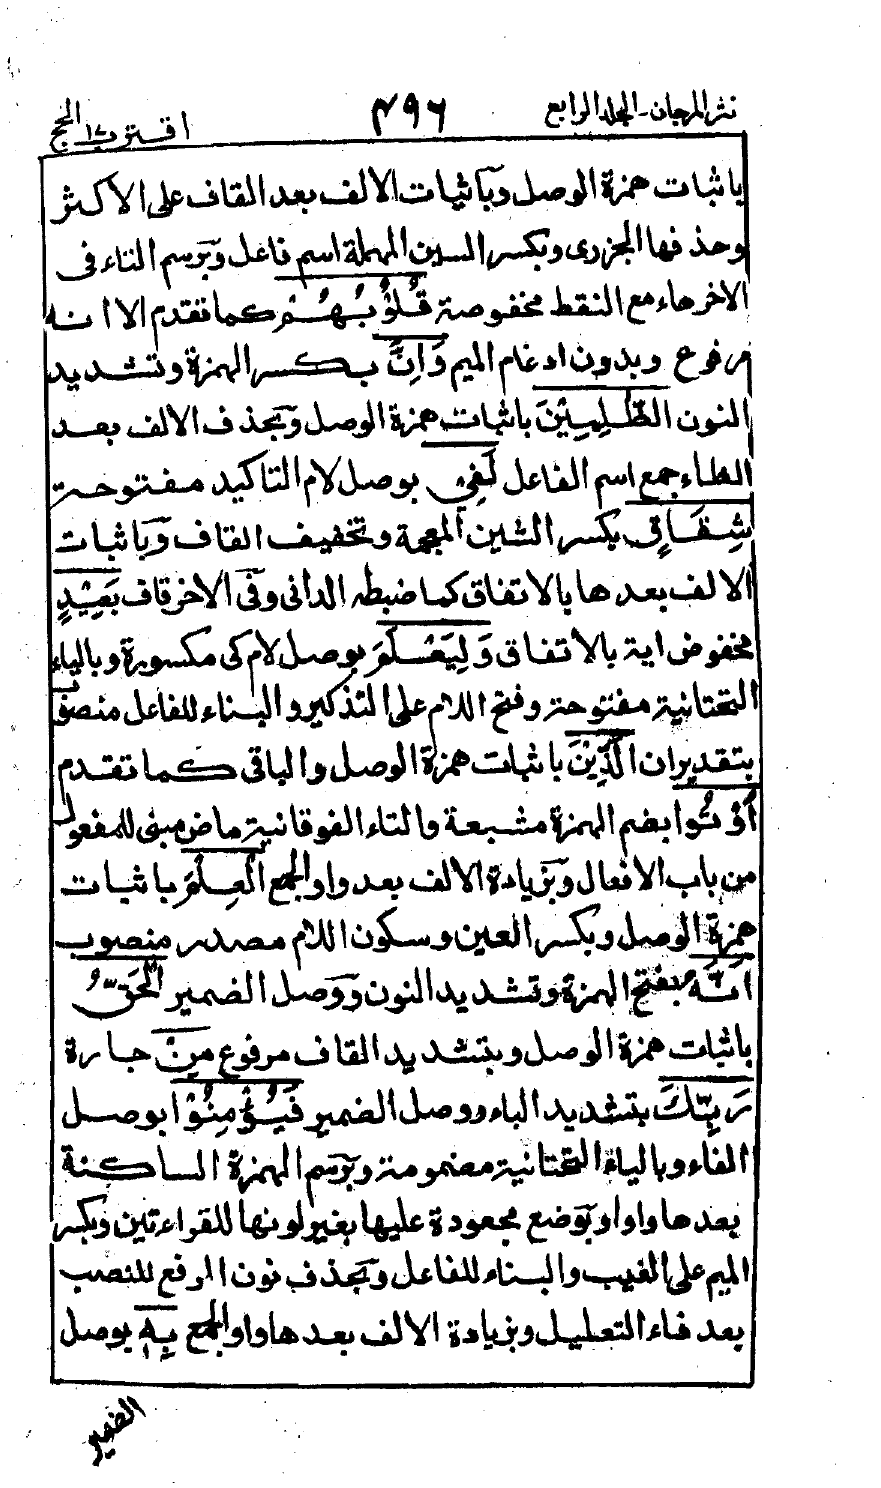 نثر المرجان - المجلد الرابع ۴۹۶ اقترب ١٧ الحج
باثبات همزة الوصل وبآثبات الالف بعد القاف على الاكثر
وحذفها الجزرى وبكسر السين المهملة اسم فاعل وبرسم التاء فى
الاخر هاء مع النقط مخفوضة قُلُوْبُهُمْ كما تقدم الا انه
مرفوع وبدون ادغام الميم وَاِنَّ بكسر الهمزة وتشديد
النون الظّٰلِمِيْنَ باثبات همزة الوصل وبحذف الالف بعد
الظاء جمع اسم الفاعل لَفِيْ بوصل لام التاكيد مفتوحة
شِقَاقٍ بكسر الشين المعجمة وتخفيف القاف وباثبات
الالف بعدها بالاتفاق كما ضبطه الدانى وفى الاخر قاف بَعِيْدٍ
مخفوض اية بالاتفاق وَلِيَعْلَمَ بوصل لام كى مكسورة وبالياء
التحتانية مفتوحة وفتح اللام على التذكير والبناء للفاعل منصوب
بتقدير ان الَّذِيْنَ باثبات همزة الوصل والباقى كما تقدم
اُوْتُوا بضم الهمزة مشبعة والتاء الفوقانية ماض مبنى للمفعول
من باب الافعال وبزيادة الالف بعد واو الجمع الْعِلْمَ باثبات
همزة الوصل وبكسر العين وسكون اللام مصدر منصوب
اَنَّهُ بفتح الهمزة وتشديد النون ووصل الضمير الْحَقُّ
باثبات همزة الوصل وبتشديد القاف مرفوع مِنْ جارة
رَبِّكَ بتشديد الباء ووصل الضمير فَيُؤْمِنُوْا بوصل
الفاء وبالياء التحتانية مضمومة وبرسم الهمزة الساكنة
بعدها واوا وبوضع مجعودة عليها بغير لونها للقراءتين وبكسر
الميم على الغيب والبناء للفاعل وبحذف نون الرفع للنصب
بعد فاء التعليل وبزيادة الالف بعدها واو الجمع بِهٖ بوصل
الضمير